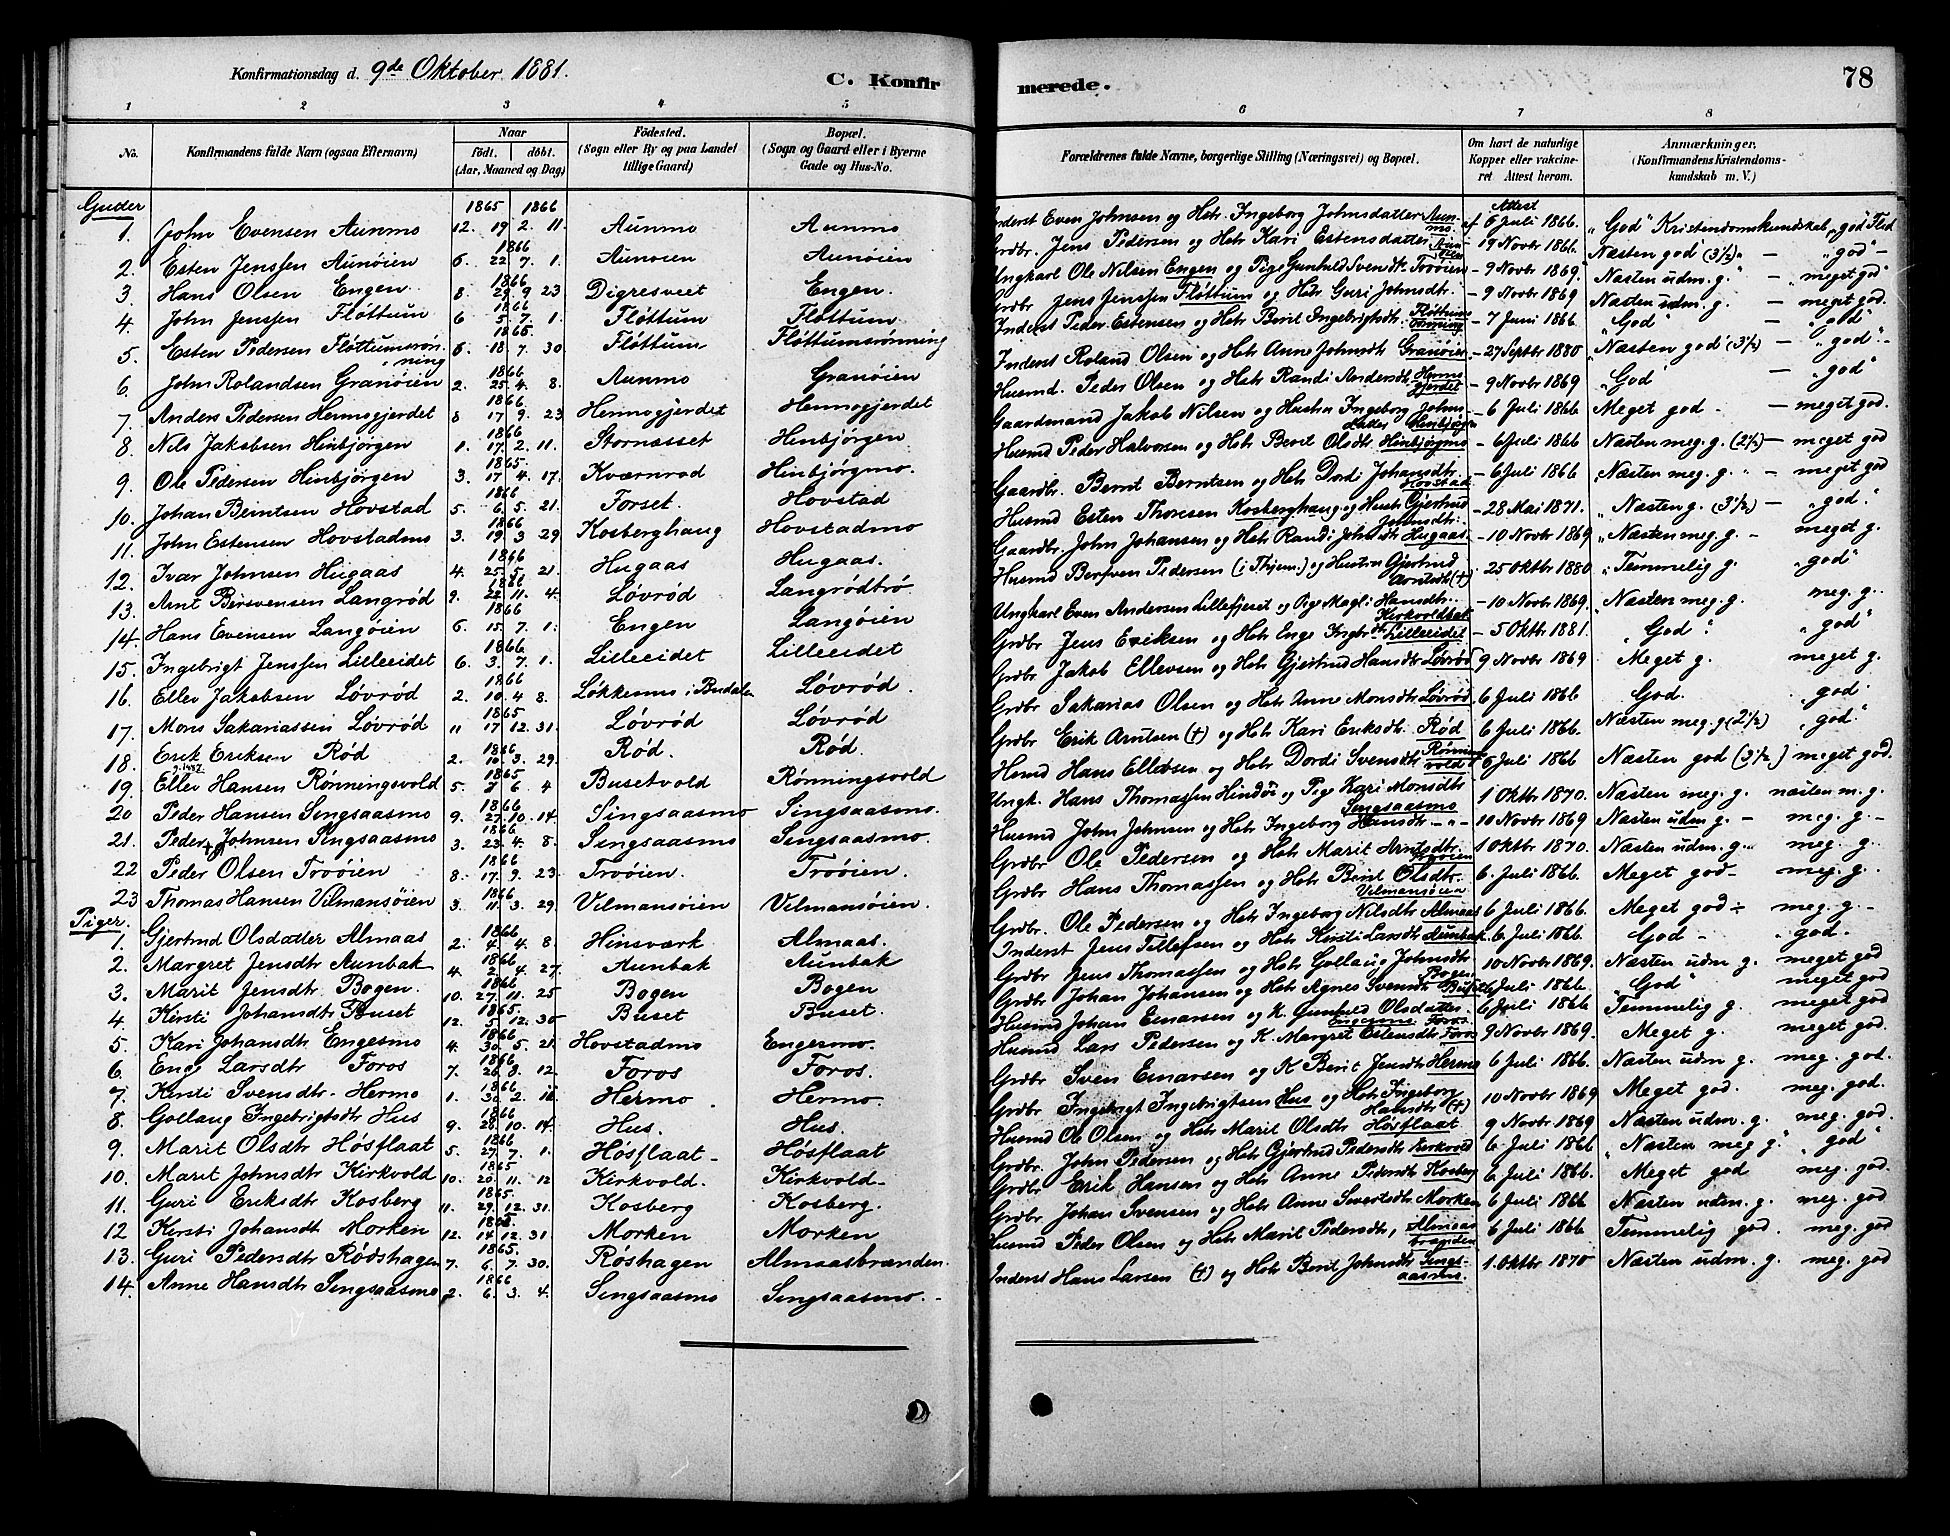 Konfirmationsdag d. 9de Oktober 1881.
C. Konfir
merede.
78
1 2 3 4 5 6 7 8
No.
Konfirmandens fulde Navn (ogsaa Efternavn)
Naar
födt. döbt.
(Aar, Maaned og Dag)
Födested.
(Sogn eller By og paa Landet
tillige Gaard)
Bopæl.
(Sogn og Gaard eller i Byerne
Gade og Hus-No.
Forældrenes fulde Navne, borgerlige Stilling (Næringsvei) og Bopæl.
Om havt de naturlige
Kopper eller vakcine-
ret Attest herom.
Anmærkninger.
(Konfirmandens Kristendoms-
kundskab m. V.)
Gutter 1865 1866
Attest
1. John Evensen Aunmo 12. 19 2. 11. Aunmo Aunmo Inderst Even Johnsen og Hstr. Ingeborg Johnsdatter Aunmo. 6 Juli 1866. "God" Kristendomskundskab "god" Flid
1866
2. Esten Jenssen Aunöien 6. 22 7. 1. Aunöien Aunöien Grdbr. Jens Pedersen og Hstr Kari Estensdatter Aunöien - 19 Novbr 1866. Næsten god (3½) - "god" -
1866
3. Hans Olsen Engen. 8. 29 9 23 Digresveet Engen. Ungkarl Ole Nilsen Engen og Pige Gunhild Svendsdtr. Troöien - 9 Novbr 1869. Næsten udm. g. - "meget god"
1866
4. John Jenssen Flöttum 6 5. 7. 1. Flöttum Flöttum. Grdbr. Jens Jenssen Flöttum og Hstr Guri Johnsdtr. - 9 Novbr 1869 Næsten udm. g. - meget god.
1865
5. Esten Pedersen Flöttumsrönning 6. 18. 7. 30. Flöttum Flöttumsrönning Inderst Peder Estensen og Hstr Berit Ingebrigtsdtr. Flöttumsrönning - 7 Juni 1866. "God" - "god"
1866
6. John Rolandsen Granöien 2. 25 4. 8. Aunmo Granöien Inderst Roland Olsen og Hstr Anne Johnsdtr Granöien - 27 Septbr 1880 "Næsten god" (3½) - "god"
1866
7. Anders Pedersen Hermogjerdet 8 17 9. 23 Hermogjerdet Hermogjerdet Husmd. Peder Olsen og Hstr Randi Andersdtr. Hermogjerdet - 9 Novbr 1869 "God" - "god"
1866
8. Nils Jakobsen Hinbjörgen 1. 17. 2. 11. Stornæsset Hinbjörgen Gaardmand Jakob Nilsen og Hustru Ingeborg Johnsdatter Hinbjörgen - 6 Juli 1866. Meget god - - meget god.
1865
9. Ole Pedersen Hinbjörgen 3. 17 4. 17. Kværnrod Hinbjörgmo. Husmd Peder Halvorsen og Hstr Berit Olsdtr Hinbjörgmo - 6 Juli 1866 Næsten meg. g. (2½) - meget god
1866
10. Johan Berntsen Hovstad 5. 6. 5. 21. Forset. Hovstad Gaardbr. Bernt Berntsen og Hstr Dordi Johansdtr. Hovstad - 6 Juli 1866 Næsten meg. g. - meget god
1866
11. John Estensen Hovstadmo 3. 19 3 29 Kosberghaug Hovstadmo Husmd Esten Thoresen Kosberghaug og Hustr Gjertrud Johnsdtr. - 28 Mai 1871. "Næsten g. (3½) - "god"
1866
12. Ivar Johnsen Hugaas 4. 25. 5. 21. Hugaas Hugaas. Gaardbr. John Johansen og Hstr Randi Johnsdtr Hugaas - 10 Novbr 1869 "Næsten meg. g. - meget g.
1866
13. Arnt Bersvensen Langröd 9. 22 11. 4. Lövröd Langrödtrö Husmd Bersven Pedersen (i Thjem.) og Hustru Gjertrud Arntsdtr (†) - 25 Oktbr 1880 "Temmelig g. "god"
1866
14. Hans Evensen Langöien 6. 15. 7. 1. Engen Langöien Ungkarl Even Andersen Lillefjeret og Pige Magli Hansdtr. - 10 Novbr 1869. "Næsten meg. g. meg. g.
1866
15. Ingebrigt Jenssen Lilleeidet 6. 3. 7. 1. Lilleeidet Lilleeidet Grdbr Jens Eriksen og Hstr Enge Ingbrdtr Lilleeidet - 5 Oktbr 1881. "God" "god"
1866
16. Ellev Jakobsen Lövröd 2. 10. 4 8. Lökkenmo i Budalen Lövröd. Grdbr Jakob Ellevsen og Hstr Gjertrud Hansdtr Lövröd 9 Novbr 1869 Meget g. meget g.
1865
17. Mons Sakariassen Lövröd 11 17 12. 31. Lövröd Lövröd Grdbr Sakarias Olsen og Hstr Anne Monsdtr Lövröd 6 Juli 1866 God. "god"
1866
18. Erik Eriksen Röd 2. 10 3. 29. Röd. Röd. Grdbr Erik Arntsen (†) og Hstr Kari Eriksdtr. Röd 6 Juli 1866 Næsten meg. g (2½) "god"
1865
19. Ellev Hansen Rönningsvold 5. 2 6. 4 Busetvold Rönningsvold Husmd Hans Ellevsen og Hstr Dordi Svensdtr Rönningsvold 6 Juli 1866 Næsten god (3½) meget god.
1866
20 Peder Hansen Singsaasmo 9. 27. 10. 14. Singsaasmo Singsaasmo. Ungk. Hans Thomassen Hindöi og Pige Kari Monsdtr Singsaasmo 1 Oktbr 1870. Næsten meg. g. næsten m. g.
1866
21. Peder Johnsen Singsaasmo 3. 23 4. 8. Singsaasmo Singsaasmo. Husmd John Johnsen og Hstr Ingeborg Hansdtr - " - 10 Novbr 1869 Næsten udm g. - meg. g. -
1866
22 Peder Olsen Troöien 8. 17. 9. 23 Troöien Troöien. Grdbr Ole Pedersen og Hstr Marit Arntsdtr. Troöien 1 Oktbr 1870. Næsten udm. g. meg. g.
1866
23 Thomas Hansen Vilmansöien 3. 11. 3. 29. Vilmansöien Vilmansöien. Grdbr Hans Thomassen og Hstr Berit Olsdtr. Vilmansöien 6. Juli 1866. Meget god - meg. g.
Piger. 1866
1. Gjertrud Olsdatter Almaas 2. 4. 4. 8. Hinsværk Almaas. Grdbr. Ole Pedersen og Hstr Ingeborg Nilsdtr Almaas 6 Juli 1866. Meget god - meg. g. -
1866
2. Margret Jensdtr Aunbak 4. 2. 4. 27. Aunbak Aunbak Inderst Jens Tillefsen og Hstr Kirsti Larsdtr Aunbak 6. Juli 1866. God - god.
1866
3. Marit Jensdtr Bogen. 10. 27. 11. 25 Bogen Bogen Grdbr Jens Thomassen og Hstr Gollaug Johnsdtr Bogen 10 Novbr 1869. Næsten udm g. meget god
1865.
4. Kirsti Johansdtr Buset 12. 5 12. 30 Buset Buset. Grdbr Johan Johansen og Hstr Agnes Svensdtr Buset 6 Juli 1866. "God" meget god
1866
5. Kari Johansdtr Engesmo 4. 30. 5. 21. Hovstadmo Engesmo. Husmd Johan Einarsen og K. Gunhild Olsdatter Engesmo 6 Juli 1866 Temmelig g. meget god
1866
6. Eng Larsdtr Foros 7. 20 8. 12. Foros Foros. Husmd Lars Pedersen og K. Margret Estensdtr Foros 9 Novbr 1869. Meget g. meget god
1866
7. Kirsti Svensdtr Hermo 1. 30. 2. 18 Hermo Hermo. Grdbr Sven Einarsen og K Berit Jensdtr Hermo 6 Juli 1866. Næsten udm g. meg. god.
1866
8. Gollaug Ingebrigtsdtr Hus 9. 28. 10. 14. Hus. Hus. Grdbr. Ingebrigt Ingebrigtsen Hus og Hstr Ingeborg Hansdtr (†) 10 Novbr 1869 Meget god. meg. god.
1866
9. Marit Olsdtr Hösflaat 5. 27. 7. 1. Hösflaat - Hösflaat Husmd Ole Olsen og Hstr Marit Olsdtr Hösflaat 9 Novbr 1869 Næsten udm. g. meg. god.
1865
10. Marit Johnsdtr Kirkvold 10. 20. 11. 12 Kirkvold. Kirkvold - Grdbr. John Pedersen og Hstr Gjertrud Pedersdtr Kirkvold 6. Juli 1866 "Næsten meg g. "god"
1865.
11. Guri Eriksdtr Kosberg 11. 29. 12. 31. Kosberg Kosberg. Grdbr Erik Hansen og Hstr Anne Pedersdtr Kosberg 6. Juli 1866. Meget god meg. god.
1865.
12 Kirsti Johansdtr Morken 12. 14 12. 31. Morken Morken Grdbr Johan Svensen og Hstr Anne Sivertsdtr. Morken 6 Juli 1866 Næsten udm. g. meg. god
1865.
13. Guri Pedersdtr Rödshagen 7. 6. 7. 30. Röshagen Almaasbrænden. Husmd Peder Olsen og Hstr Marit Pedersdtr, Almaasbrænden 6 Juli 1866 Temmelig god. meg. god
1866
14. Anne Hansdtr Singsaasmo 2. 6. 3. 4. Singsaasmo Singsaasmo. - Inderst Hans Larsen (†) og Hstr Berit Johnsdtr Singsaasmo. 1. Oktbr 1870 Næsten udm. g. meg. god